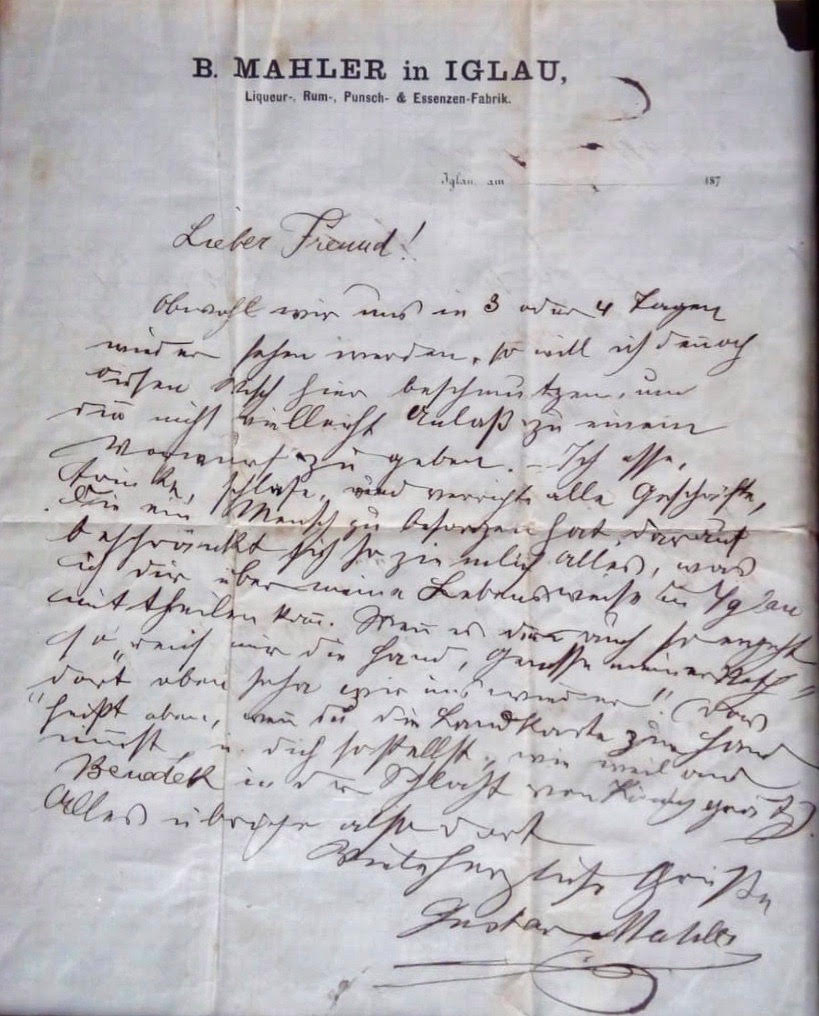 B. MAHLER in IGLAU,
Liqueur-, Rum-, Punsch- & Essenzen-Fabrik.
Iglau am 187
Lieber Freund!
Obwohl wir uns in 3 oder 4 Tagen
wieder sehen werden, so will ich dennoch
diesen Wisch hier beschmutzen, um
dir nicht vielleicht Anlaß zu einem
Vorwurf zu geben. – Ich esse,
trinke, schlafe, und verrichte alle Geschäfte,
die ein Mensch zu besorgen hat, darauf
beschränkt sich so ziemlich alles, was
ich dir über meine Lebensweise in Iglau
mittheilen kann. Wenn es dir auch so ergeht
so „reich mir die Hand, Genosse meiner Noth"
dort oben sehn wir uns wieder! (Das
heißt oben, wenn du die Landkarte zur Hand
nimmst, u. dich so stellst, wie weiland
Benedek in der Schlacht von Königgrätz).
Alles übrige also dort
Viele herzliche Grüße
Gustav Mahler